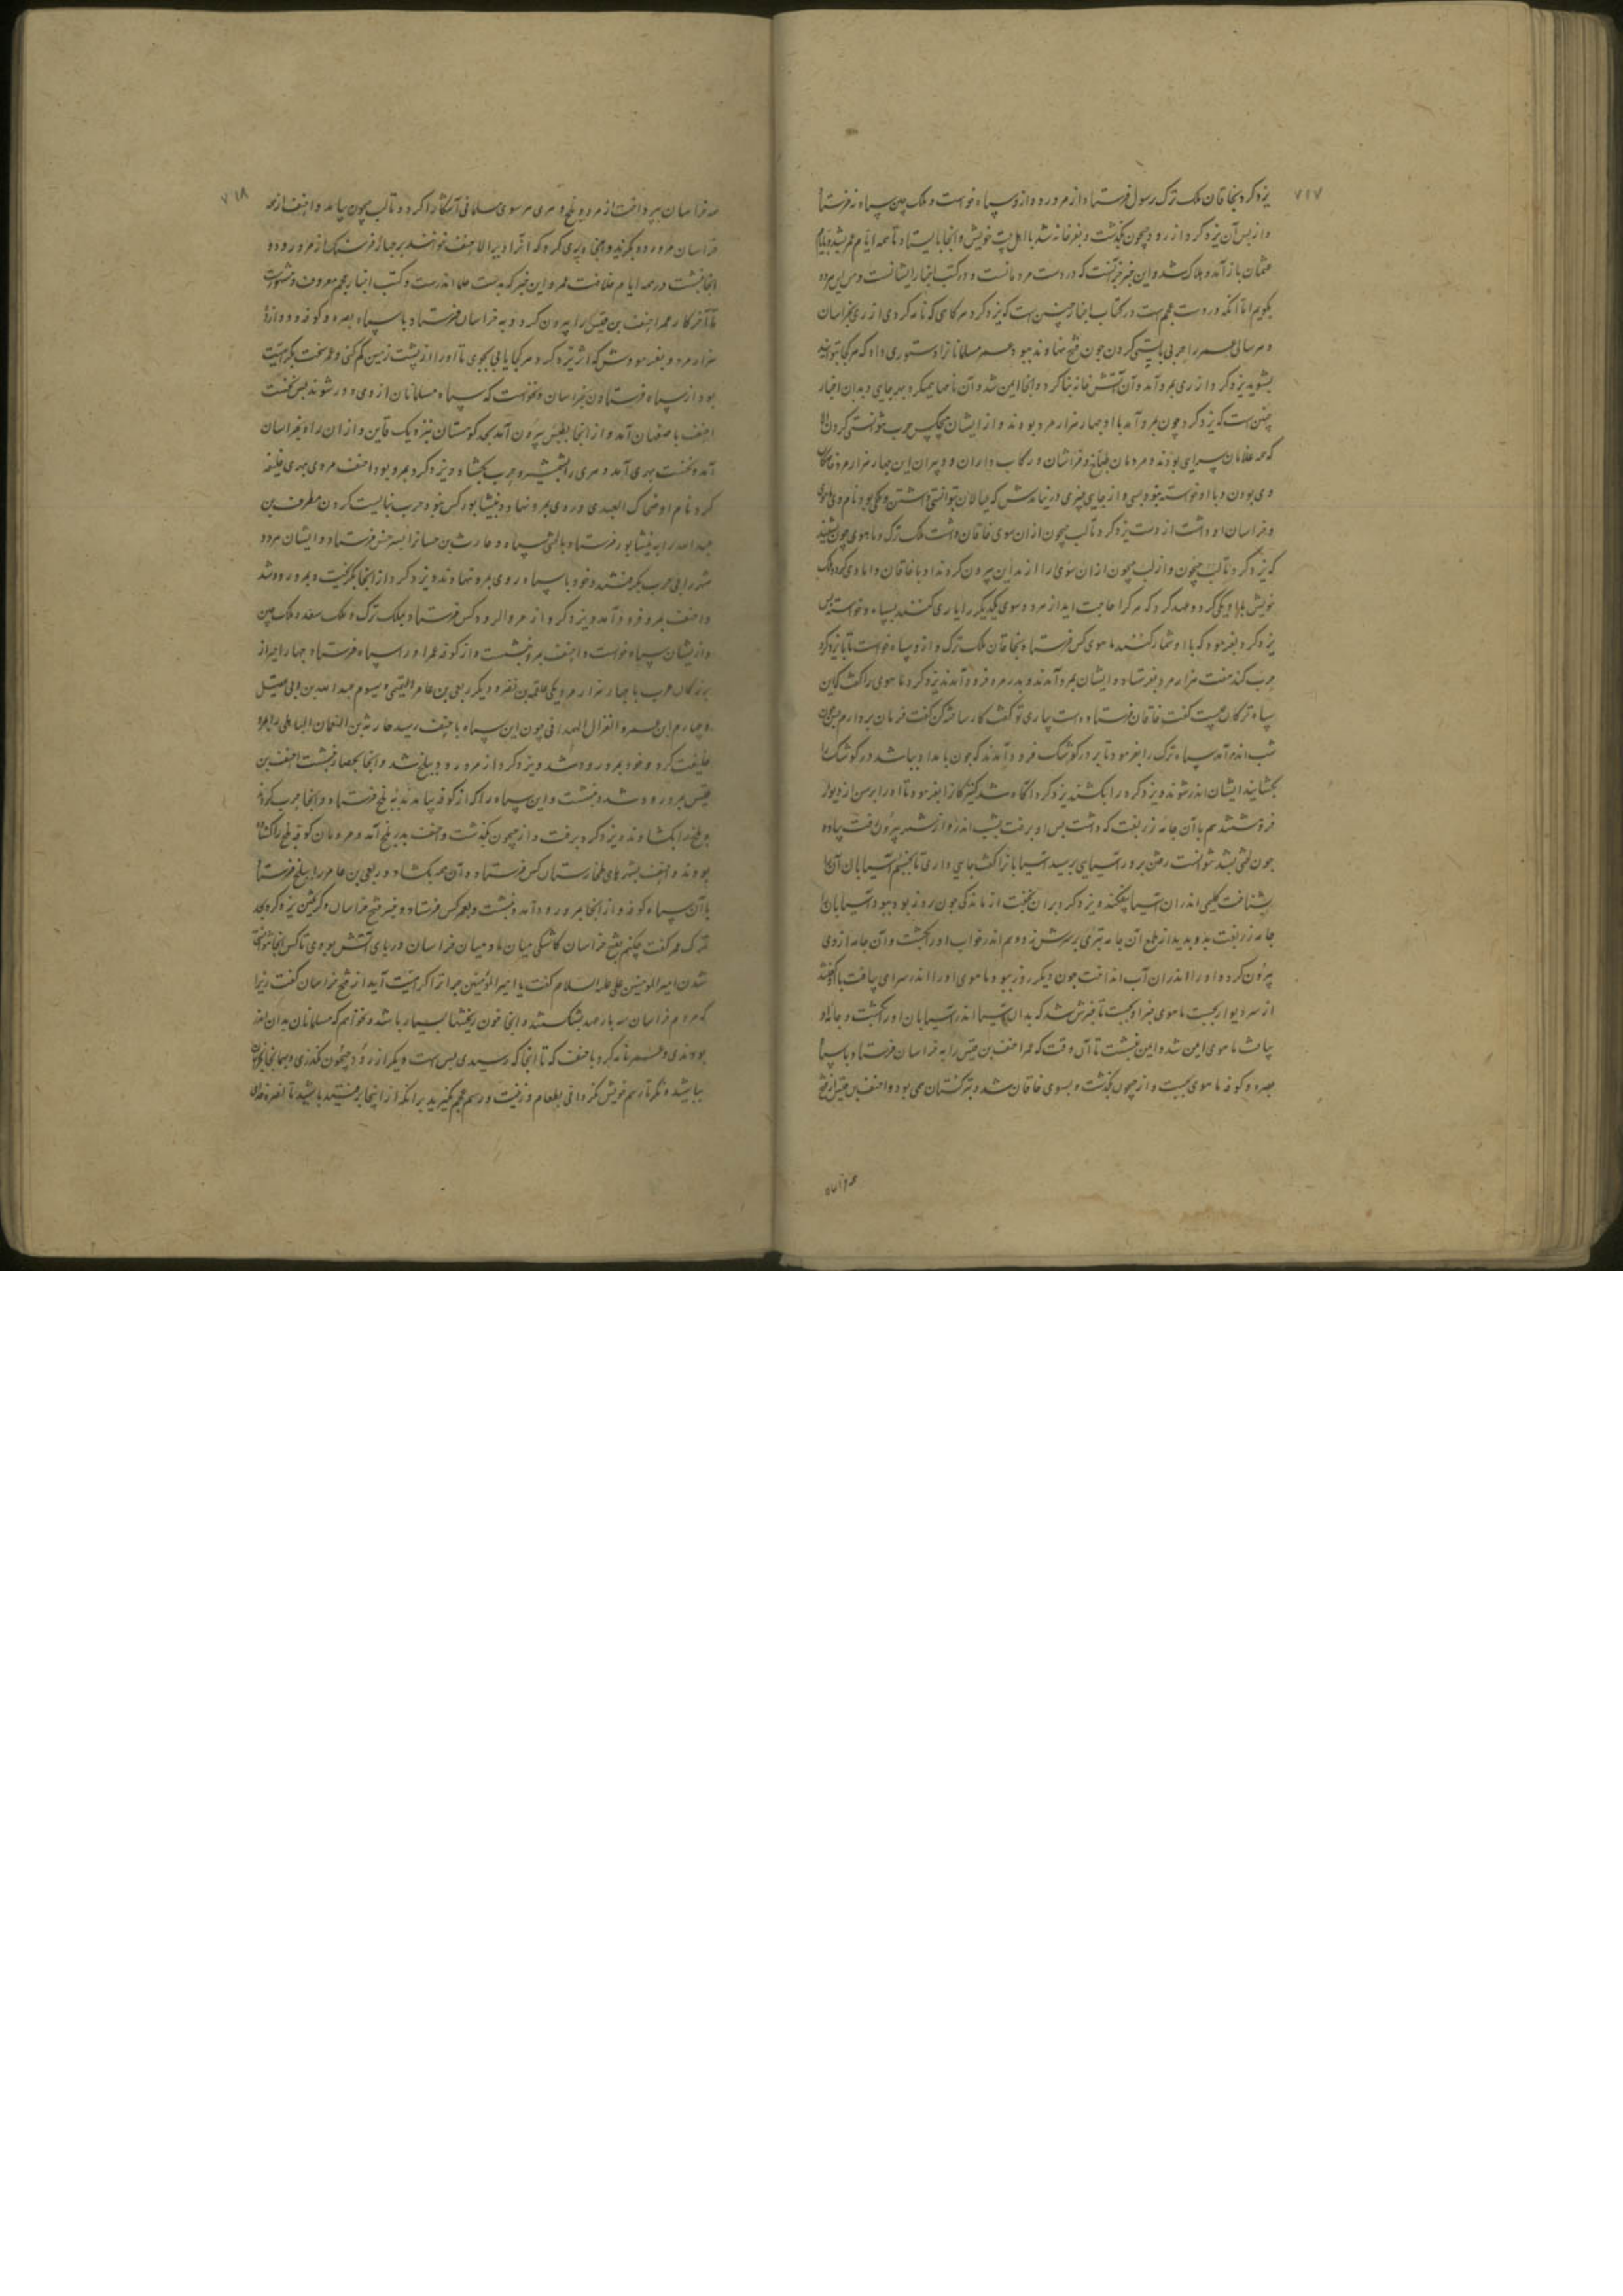 ۷۱۷
یزدکرد بخاقان ملک ترک رسول فرستاد از مرورود و ازو سپاه خواست و ملک چین سپاه نفرستاد
و از پس آن یزدکرد از رود جیحون بگذشت و بفرغانه شد با اهل بیت خویش و آنجا بایستاد تا همه ایام عمر بشد و بایام
عثمان باز آمد و هلاک شد و این خبر آنست که در دست مردمانست و در کتب اخبار ایشانست و من این هردو
بگویم اما آنکه در دست عجم است در کتاب اخبار چنین است که یزدکرد هرگاهی که نامه کردی از ری بخراسان
و هر سالی عمر را حربی بایستی کردن چون فتح نهاوند ببود و عمر مسلمانانرا دستوری داد که هرکجا توانید
بشوید یزدکرد از ری بمرو آمد و آن آتش خانه بنا کرد و آنجا ایمن شد و آن نامها همیکرد بهر جای و بدان اخبار
چنین است که یزدکرد چون بمرو آمد با او چهار هزار مرد بودند و از ایشان هیچکس حرب نتوانستی کردن الا
که همه غلامان سرایی بودند و مردمان طباخ و فراشان و رکاب داران و دبیران این چهار هزار مرد
وی بودن و با او خواسته نبود بسی و از جای چیزی در نیامدش که عیالان توانستی داشتن و یکی بود نام وی ماهوی
و خراسان او داشت از دست یزدکرد تا لب جیحون از آن سوی خاقان داشت ملک ترک و ماهوی چون بشنید
که یزدکرد تا لب جیحون و از لب جیحون از آن سوی را از مداین بیرون کردند او با خاقان دامادی کرد و ملک
خویش با او یکی کرد و عهد کرد که هرکرا حاجت آید از هر دو سوی یکدیگر را یاری کنند بسپاه و خواسته پس
یزدکرد بفرمود که با او شمار کنند ماهوی کس فرستاد بخاقان ملک ترک و ازو سپاه خواست تا با یزدکرد
حرب کند هفت هزار مرد بفرستاد و ایشان بمرو آمدند و بدر مرو فرود آمدند یزدکرد ماهوی را گفت که این
سپاه ترکان چیست گفت خاقان فرستاده است بیاری تو گفت کار ساخته کن گفت فرمان بردارم چون
شب اندر آمد سپاه ترک را بفرمود تا بر در کوشک فرود آمدند که چون بامداد باشد در کوشک را
بگشایند ایشان اندر شوند و یزدکرد را بکشند یزدکرد آگاه شد کنیزکانرا بفرمود تا او را برسن از دیوار
فروهشتند هم با آن جامه زربفت که داشت پس او برفت بشب اندر و از شهر بیرون رفت پیاده
چون لختی بشد نتوانست رفتن بر در آسیایی برسید آسیابانرا گفت جایی داری تا بخسبم آسیابان آن را
بشناخت گلیمی اندر آن آسیا بیفکند و یزدکرد بر آن بخفت از ماندگی چون روز بود ببود آسیابان را
جامه زربفت بدو بدید از طمع آن جامه تبری بر سرش زد و هم اندر خواب او را بکشت و آن جامه از وی
بیرون کرد و او را اندر آن آب انداخت چون دیگر روز ببود و ماهوی او را اندر سرای نیافت با او گفتند
از سر دیوار بجست ماهوی خبر او بجست تا خبرش شد که بدان آسیا اندر آسیابان او را بکشت و جامه او
بیافت ماهوی ایمن شد و ایمن بنشست تا آن وقت که عمر احنف بن قیس را به خراسان فرستاد با سپاه
بصره و کوفه ماهوی بجست و از جیحون بگذشت و بسوی خاقان شد و بترکستان می بود و احنف بن قیس از فتح
۷۱۸
همه خراسان بپرداخت از مرو و بلخ و هری هر سوی مسلمانی آشکارا کرد و تا لب جیحون بیامد و احنف از همه
خراسان مرورود بگزید و آنجا دیری کرد که آنرا دیر الاحنف خوانند بر چهار فرسنگ از مرورود و
آنجا بنشست در همه ایام خلافت عمر و این خبر که بدست علما اندرست و کتب اخبار عجم معروف و مشهورست
تا آخر کار عمر احنف بن قیس را بیرون کرد و به خراسان فرستاد با سپاه بصره و کوفه و دوازده
هزار مرد و بفرمودش که اثر یزدکرد هر کجا یابی بجوی تا او را از پشت زمین کم کنی و عمر سخت بکراهیت
بود از سپاه فرستادن بخراسان و نخواست که سپاه مسلمانان از وی دور شوند پس نخست
احنف باصفهان آمد و از آنجا بطبس بیرون آمد بحد کوهستان نزدیک قاین و از آن راه بخراسان
آمد و نخست بهری آمد و هری را بشمشیر و حرب بگشاد و یزدکرد بمرو بود احنف مردی بهری خلیفه
کرد نام او ضحاک العبدی و روی بمرو نهاد و بنیشابور کس نبود و حرب نبایست کردن مطرف بن
عبدالله را به نیشابور فرستاد با لختی سپاه و حارث بن حسانرا بسرخس فرستاد و ایشان هردو
شهر را بی حرب بگرفتند و خود با سپاه روی بمرو نهادند و یزدکرد از آنجا بگریخت و بمرورود شد
و احنف بمرو فرود آمد و یزدکرد از مروالرود کس فرستاد بملک ترک و ملک سغد و ملک چین
و از ایشان سپاه خواست و احنف بمرو بنشست و از کوفه عمر او را سپاه فرستاد چهار امیر از
بزرگان عرب با چهار هزار مرد یکی علقمه بن نضر و دیگر ربعی بن عامر التمیمی و سیوم عبدالله بن ابی عقیل
و چهارم ابن عمرو الغزال الهمدانی چون این سپاه باحنف رسید حارثه بن النعمان الباهلی را بمرو
خلیفت کرد و خود بمرورود شد و یزدکرد از مرورود ببلخ شد و آنجا بحصار بنشست احنف بن
قیس بمرورود شد و بنشست و این سپاه را که از کوفه بیامدند به بلخ فرستاد و آنجا حرب کردند
و بلخ را بگشادند و یزدکرد برفت و از جیحون بگذشت و احنف بدر بلخ آمد و مردمان کوفه بلخ را گشاده
بودند و احنف بشهرهای طخارستان کس فرستاد و آن همه بگشاد و ربعی بن عامر را ببلخ فرستاد
با آن سپاه کوفه و از آنجا بمرورود آمد و بنشست و بعمر کس فرستاد و خبر فتح خراسان و گریختن یزدکرد بحد
ترک عمر گفت چکنم بفتح خراسان کاشکی میان ما و میان خراسان دریای آتش بودی تا کس آنجا نتوانستی
شدن امیر المؤمنین علی علیه السلام گفت یا امیر المؤمنین چرا ترا کراهیت آید از فتح خراسان گفت زیرا
که مردم خراسان سه بار عهد بشکستند و آنجا خون ریختنها بسیار باشد و نخواهم که مسلمانان بدان اندر
بودندی و عمر نامه کرد باحنف که تا آنجا که رسیدی بس است و دیگر از رود جیحون نگذری و همانجا
بباشید و نگر تا رسم خویش نگردانی بطعام و زینت و رسم عجم نگیرید برانکه از اینجا برفتید باشید تا نصره خدای